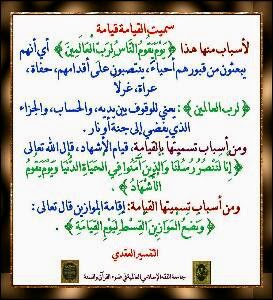 سميت القيامة قيامة
لأسباب منها هذا ﴿ يَوْمَ يَقُومُ النَّاسُ لِرَبِّ الْعَالَمِينَ ﴾ أي أنهم
يبعثون من قبورهم أحياءً، ينتصبون على أقدامهم، حفاة،
عراة، غرلا
﴿ لرب العالمين ﴾ : يعني للوقوف بين يديه، والحساب، والجزاء
الذي يفضي إلى جنة أو نار.
ومن أسباب تسميتها بالقيامة، قيام الأشهاد، قال الله تعالى
﴿ إِنَّا لَنَنصُرُ رُسُلَنَا وَالَّذِينَ آمَنُوا فِي الْحَيَاةِ الدُّنْيَا وَيَوْمَ يَقُومُ
الْأَشْهَادُ ﴾
ومن أسباب تسميتها القيامة: إقامة الموازين قال تعالى:
﴿ وَنَضَعُ الْمَوَازِينَ الْقِسْطَ لِيَوْمِ الْقِيَامَةِ ﴾
التفسير العقدي
جامعة الفقه الإسلامي العالمية في ضوء القرآن والسنة